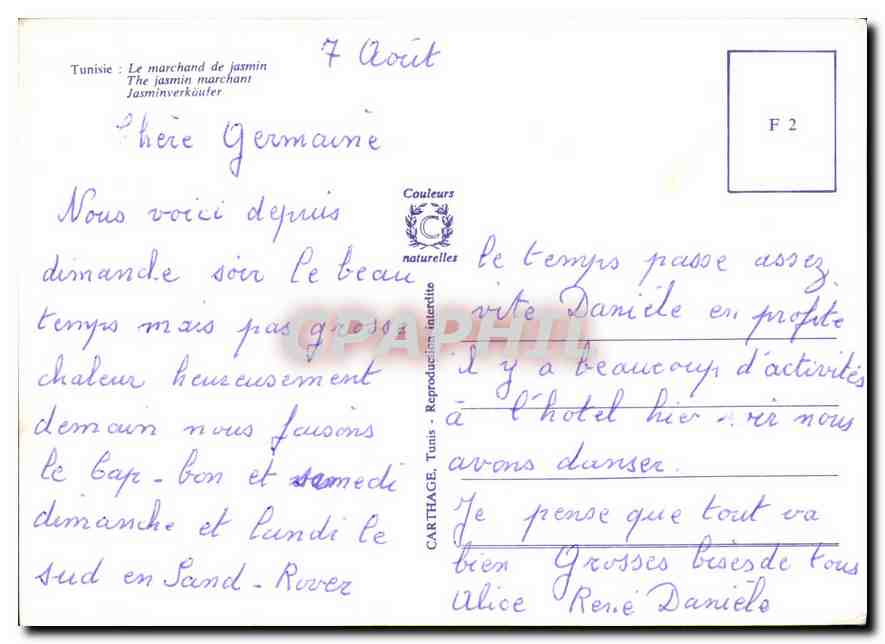 Tunisie : Le marchand de jasmin
The jasmin marchant
Jasminverkäufer
7 Août
F 2
Chère Germaine
Couleurs
C
naturelles
CARTHAGE, Tunis - Reproduction interdite
Nous voici depuis
dimanche soir le beau
temps mais pas grosse
chaleur heureusement
demain nous faisons
le Cap-bon et samedi
dimanche et lundi le
sud en Land-Rover
le temps passe assez
vite Danièle en profite
il y a beaucoup d'activités
à l'hotel hier soir nous
avons danser.
Je pense que tout va
bien Grosses bises de tous
Alice René Danièle
CPAPHIL